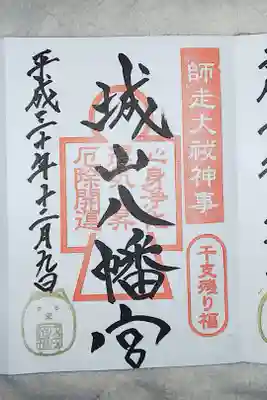 師走大祓神事
干支残り福
城山八幡宮
心身浄化
運気上昇
厄除開運
平成三十年十二月九日